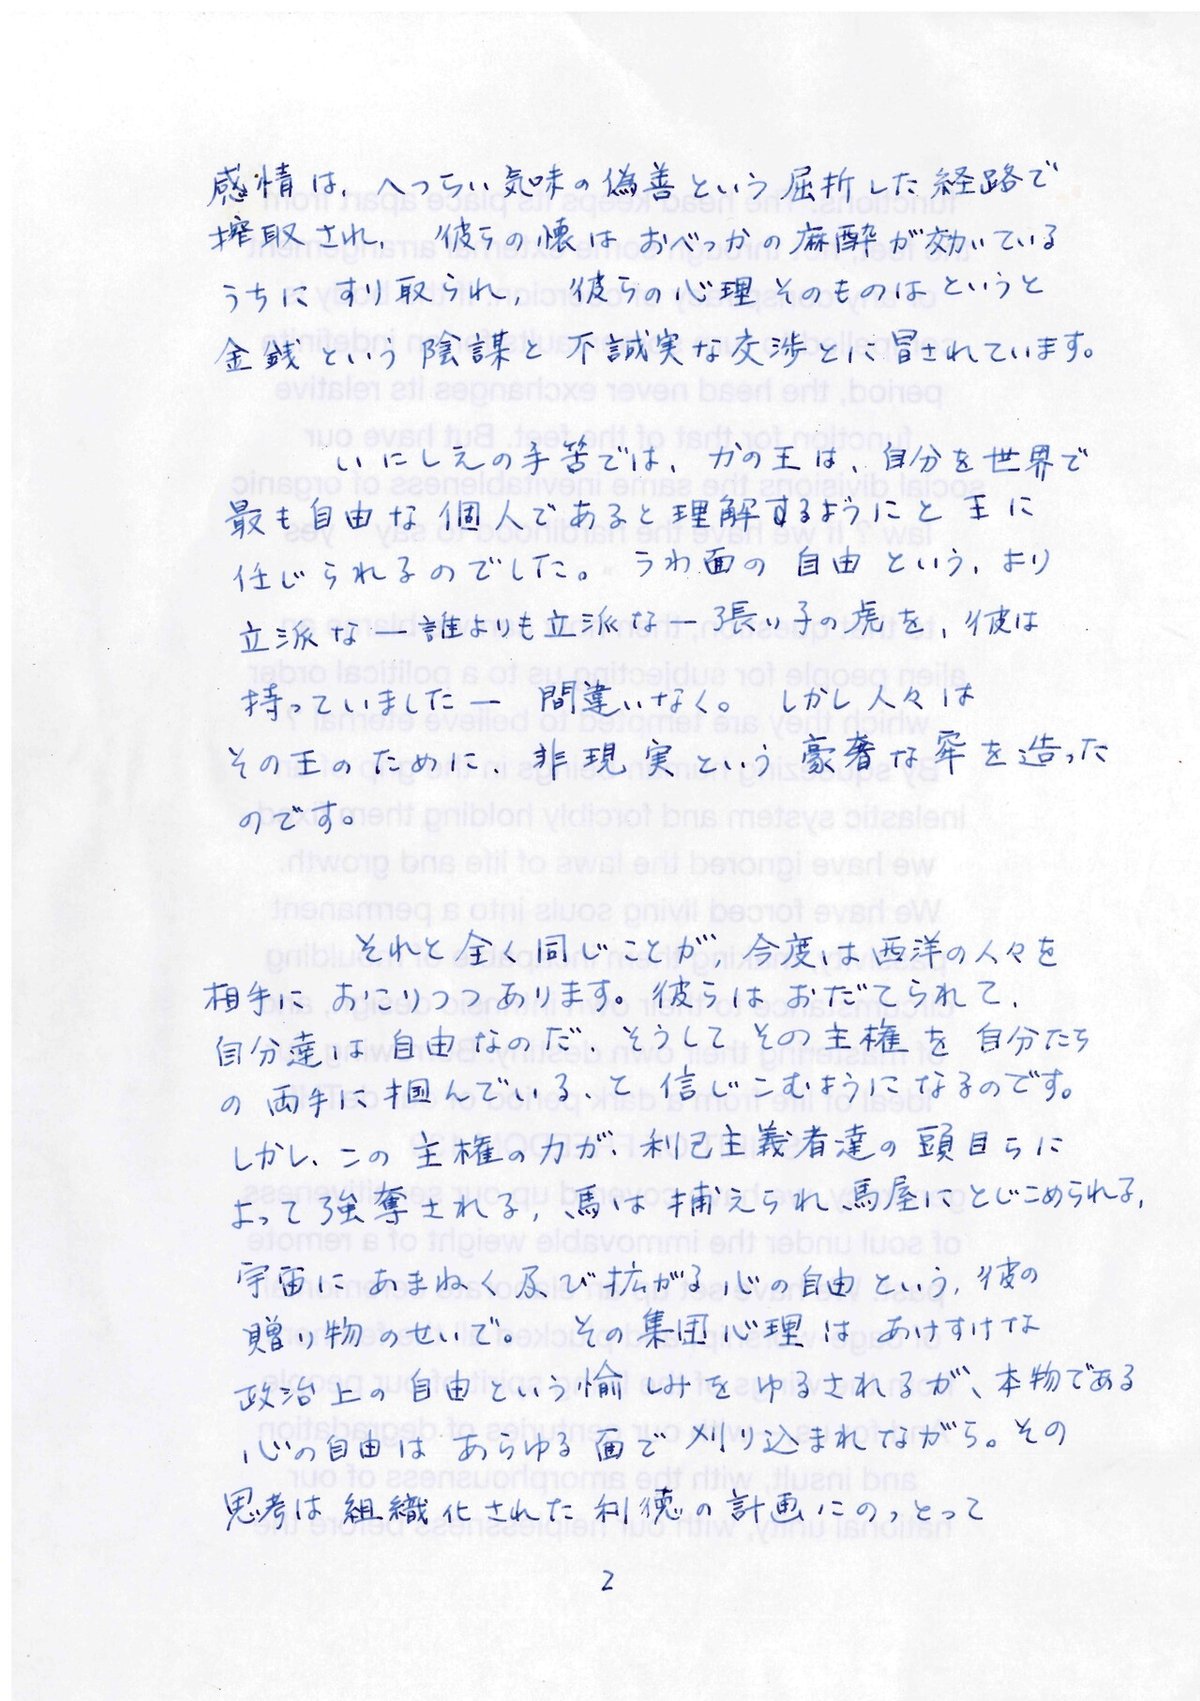 感情は、へつらい気味の偽善という屈折した経路で
搾取され、彼らの懐はおべっかの麻酔が効いている
うちにすり取られ、彼らの心理そのものはというと
金銭という陰謀と不誠実な交渉とに冒されています。
いにしえの手筈では、かの王は、自分を世界で
最も自由な個人であると理解するようにと王に
任じられるのでした。うわ面の自由という、より
立派な―誰よりも立派な―張り子の虎を、彼は
持っていました― 間違いなく。しかし人々は
その王のために、非現実という豪奢な牢を造った
のです。
それと全く同じことが、今度は西洋の人々を
相手におこりつつあります。彼らはおだてられて、
自分達は自由なのだ、そうしてその主権を自分たち
の両手に掴んでいる、と信じこむようになるのです。
しかし、この主権の力が、利己主義者達の頭目らに
よって強奪される、馬は捕えられ馬屋にとじこめられる、
宇宙にあまねく及び拡がる心の自由という、彼の
贈り物のせいで。その集団心理はあけすけな
政治上の自由という愉しみをゆるされるが、本物である
心の自由はあらゆる面で刈り込まれながら。その
思考は組織化された利徳の計画にのっとって
2